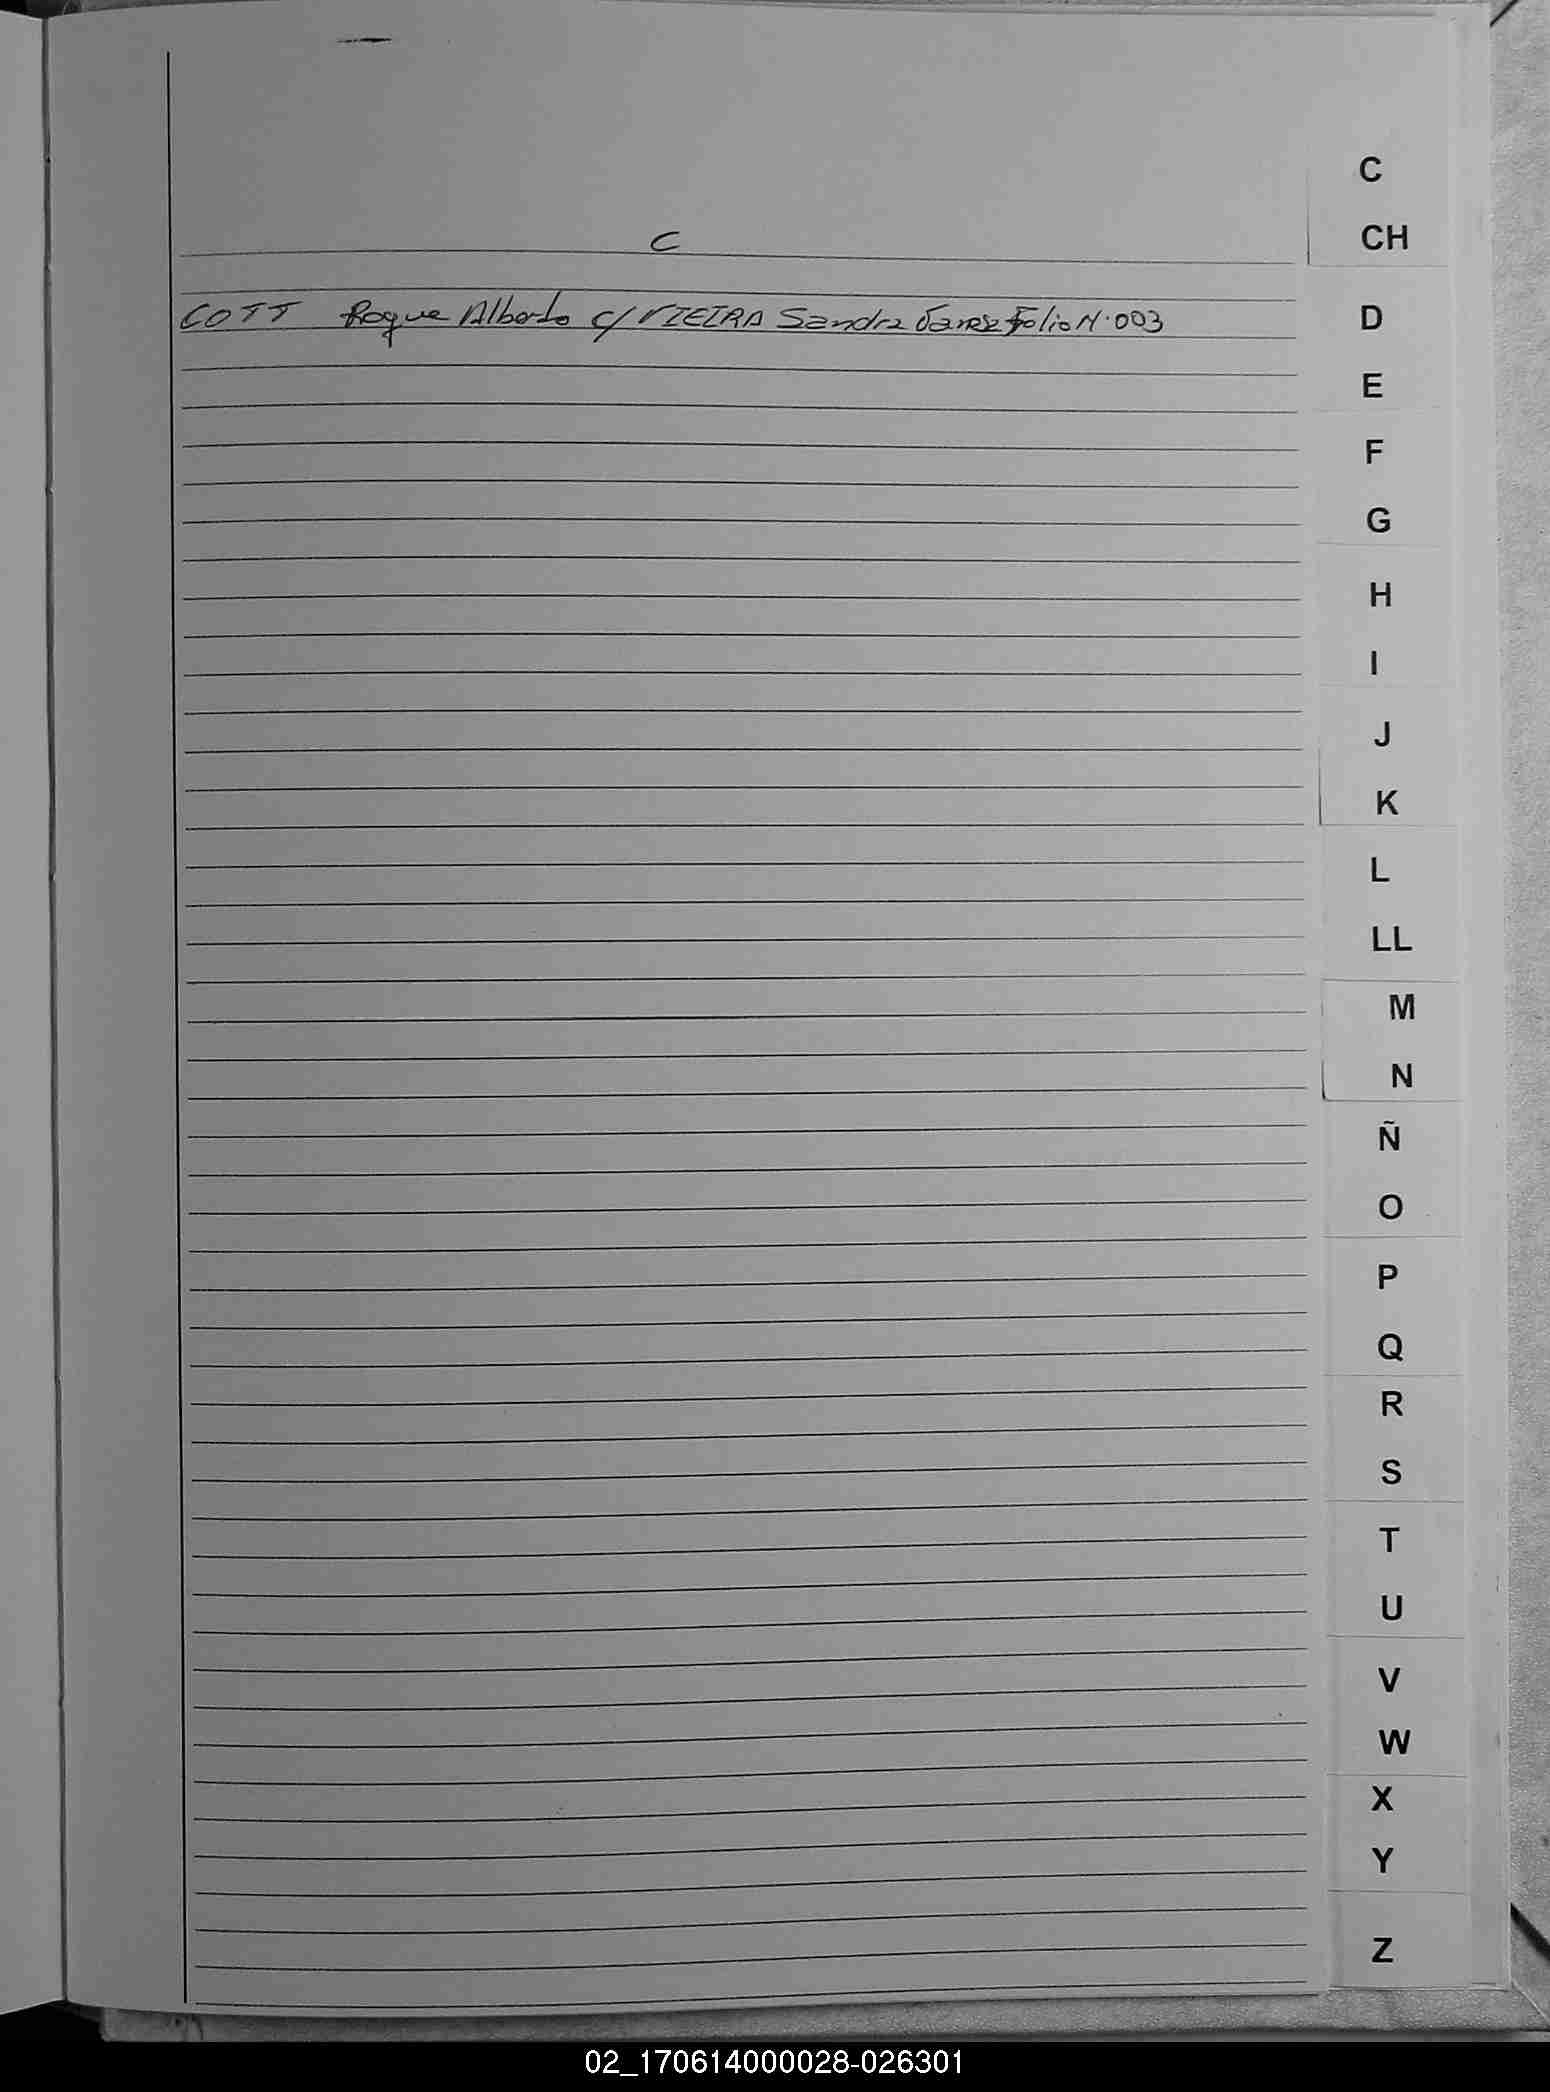 C
COTT Roque Alberto c/ VIEIRA Sandra Folio N·003
C
CH
D
E
F
G
H
I
J
K
L
LL
M
N
Ñ
O
P
Q
R
S
T
U
V
W
X
Y
Z
02_170614000028-026301